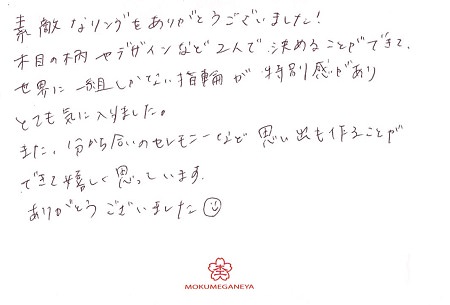 素敵なリングをありがとうございました!
木目の柄やデザインなど2人で決めることができて、
世界に一組しかない指輪が特別感があり
とても気に入りました。
また、分かち合いのセレモニーなど思い出も作ることが
できて嬉しく思っています。
ありがとうございました☺
MOKUMEGANEYA